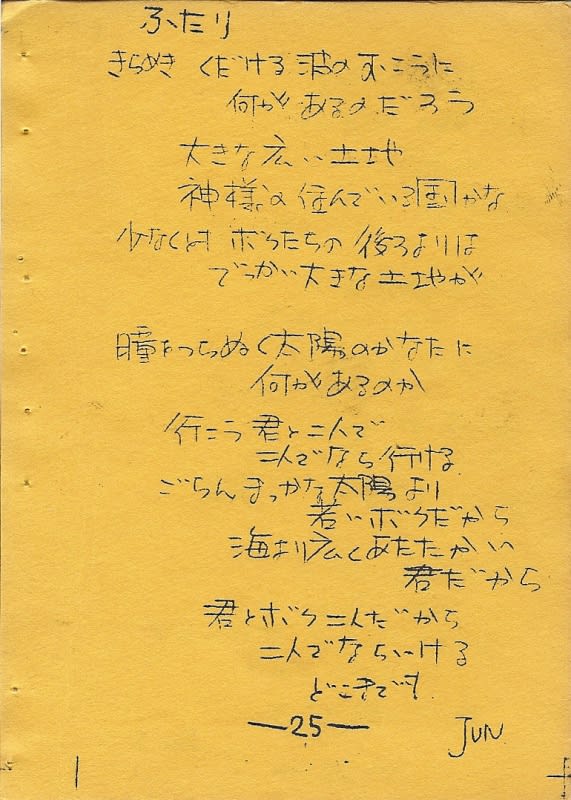 ふたり
きらめき くだける 波の むこうに
何が あるのだろう
大きな広い土地
神様の住んでいる国かな
少なくとも ボクたちの 後ろよりは
でっかい大きな土地が
瞳をつらぬく太陽のかなたに
何があるのか
行こう君と二人で
二人でなら行ける
ごらんまっかな太陽より
若いボクだから
海より広くあたたかい
君だから
君とボク二人だから
二人でならいける
どこまでも
—25—
JUN